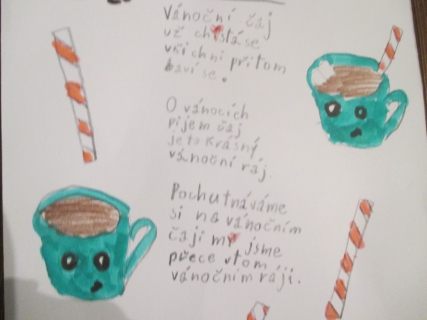 Vánoční čaj
už chistá se
všichni přitom
baví se.
O vánocích
pijem čaj
je to krásný
vánoční ráj.
Pochutnáváme
si na vánočním
čaji my jsme
přece vtom
vánočním ráji.